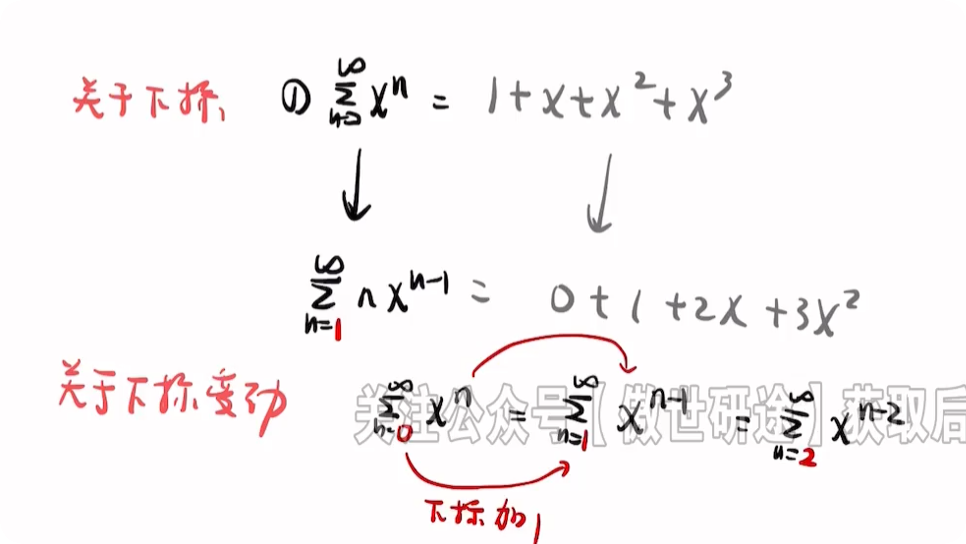 关于下标, ① ∑_{n=0}^{∞} x^n = 1+x+x^2+x^3
∑_{n=1}^{∞} n x^{n-1} = 0+1+2x+3x^2
关于下标变动 ∑_{n=0}^{∞} x^n = ∑_{n=1}^{∞} x^{n-1} = ∑_{n=2}^{∞} x^{n-2}
关注公众号【傲世研途】获取后
下标加1